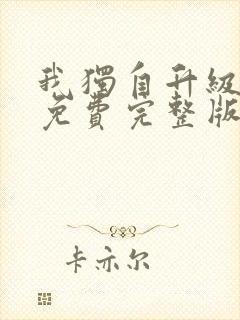 我獨自升級
免費完整版
卡亦尔